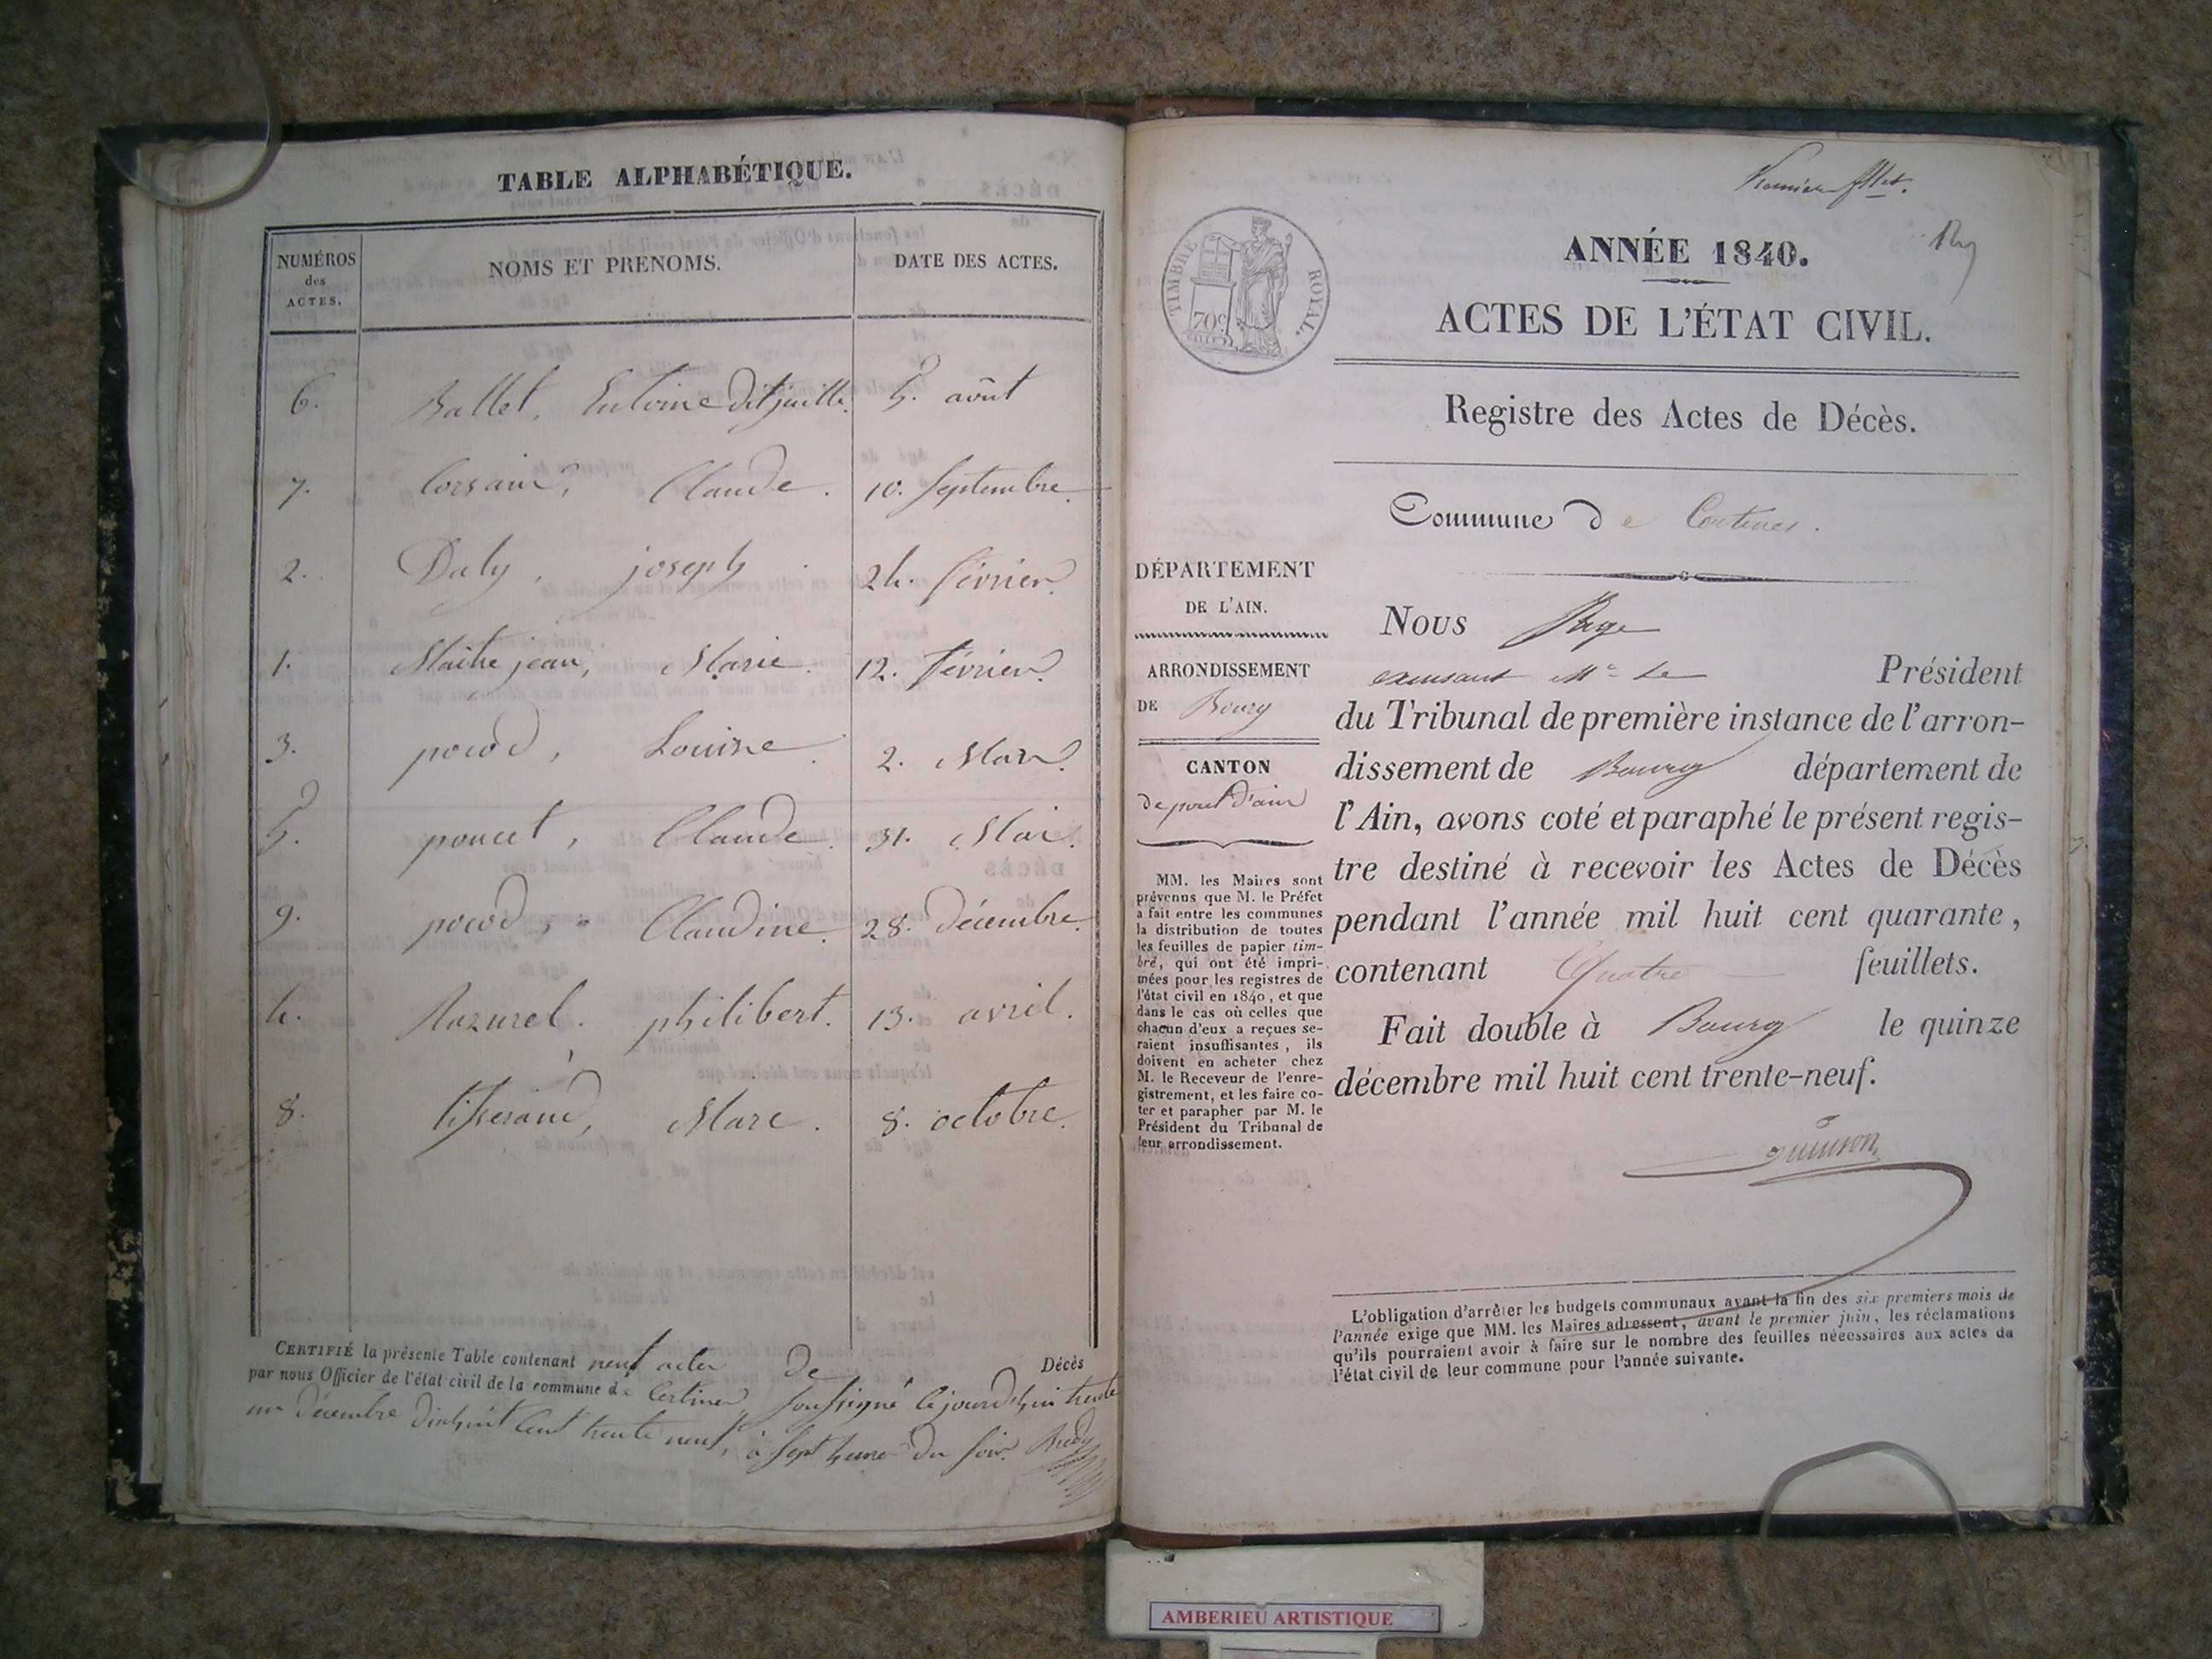 TABLE ALPHABÉTIQUE.
NUMÉROS
des
ACTES.
NOMS ET PRENOMS.
DATE DES ACTES.
6. Ballet, Antoine dit juille. 5. août
7. Corsain, Claude. 10. Septembre.
2. Daly, joseph. 24. février.
1. Maitrejean, Marie. 12. février.
3. pocod, Louise. 2. Mars.
5. poncet, Claude. 31. Mai.
9. pocod, Claudine. 28. décembre.
4. Razurel. philibert. 13. avril.
8. tisserand, Marc. 8. octobre.
CERTIFIÉ la présente Table contenant neuf actes de Décès
par nous Officier de l'état civil de la commune de Certines, soussigné cejourd'hui trente
un décembre dix huit cent trente neuf, à sept heures du soir.
Premier fllet.
ANNÉE 1840.
TIMBRE ROYAL.
70c
ACTES DE L'ÉTAT CIVIL.
Registre des Actes de Décès.
Commune de Certines.
DÉPARTEMENT
DE L'AIN.
ARRONDISSEMENT
DE Bourg
CANTON
de pont d'ain
MM. les Maires sont
prévenus que M. le Préfet
a fait entre les communes
la distribution de toutes
les feuilles de papier tim-
bré, qui ont été impri-
mées pour les registres de
l'état civil en 1840, et que
dans le cas où celles que
chacun d'eux a reçues se-
raient insuffisantes, ils
doivent en acheter chez
M. le Receveur de l'enre-
gistrement, et les faire co-
ter et parapher par M. le
Président du Tribunal de
leur arrondissement.
Nous
Mr Le Président
du Tribunal de première instance de l'arron-
dissement de Bourg département de
l'Ain, avons coté et paraphé le présent regis-
tre destiné à recevoir les Actes de Décès
pendant l'année mil huit cent quarante,
contenant Quatre feuillets.
Fait double à Bourg le quinze
décembre mil huit cent trente-neuf.
L'obligation d'arrêter les budgets communaux avant la fin des six premiers mois de
l'année exige que MM. les Maires adressent, avant le premier juin, les réclamations
qu'ils pourraient avoir à faire sur le nombre des feuilles nécessaires aux actes de
l'état civil de leur commune pour l'année suivante.
AMBERIEU ARTISTIQUE